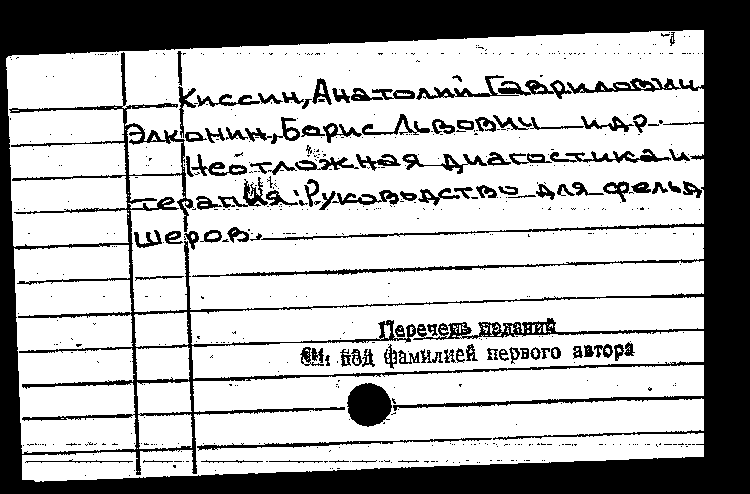 Киссин, Анатолий Гаврилович.
Элконин, Борис Львович и др.
Неотложная диагостика и
терапия: Руководство для фельд
шеров.
Перечень изданий
см. под фамилией первого автора